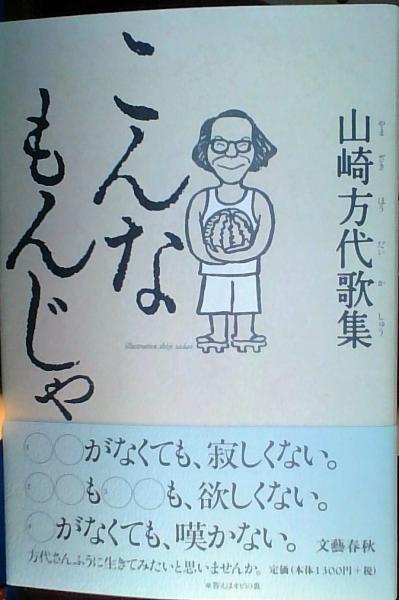 山崎方代歌集
やま ざき ほう だい か しゅう
こんな
もんじゃ
1○○がなくても、寂しくない。
2○○も3○○も、欲しくない。
4○がなくても、嘆かない。
文藝春秋
方代さんふうに生きてみたいと思いませんか。
定価(本体1300円+税)
※答えはオビの裏